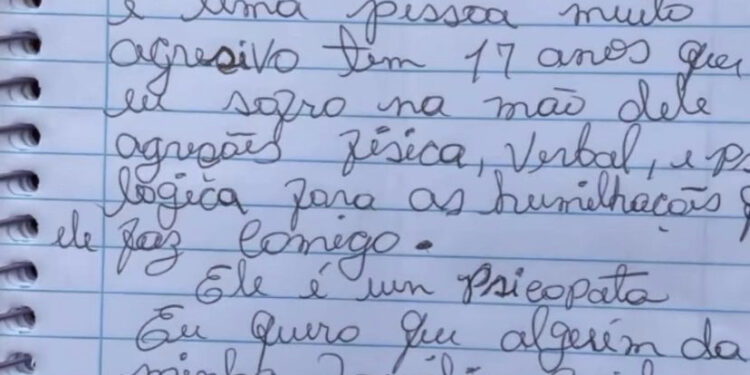 é uma pessoa muito
agresivo tem 17 anos que
eu sofro na mão dele
agreções física, verbal, e ps
logica fora as humilhações q
ele faz comigo.
Ele é um psicopata
Eu quero que alguém da
minha